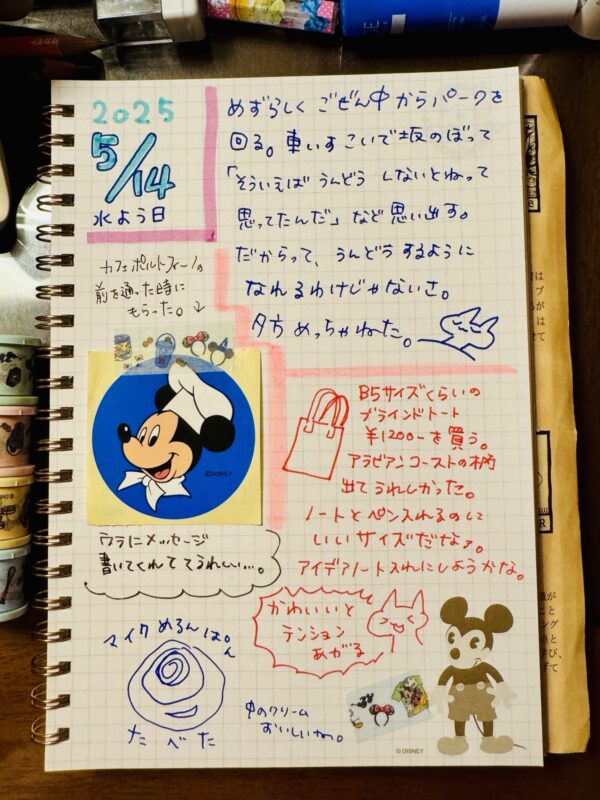 2025
5/14
水よう日
めずらしく ごぜん中からパークを
回る。車いすこいで坂のぼって
「そういえば うんどう しないとねって
思ってたんだ」など思い出す。
だからって、うんどうするように
なれるわけじゃないさ。
夕方めっちゃねた。
カフェポルトフィーノの
前を通った時に
もらった。↓
©DISNEY
ウラにメッセージ
書いてくれててうれしい…。
B5サイズくらいの
ブラインドトート
¥1200-を買う。
アラビアンコーストの柄
出てうれしかった。
ノートとペン入れるのに
いいサイズだなァ。
アイデアノート入れにしようかな。
かわいいと
テンション
あがる
マイクめろんぱん
たべた
中のクリーム
おいしいね。
© DISNEY